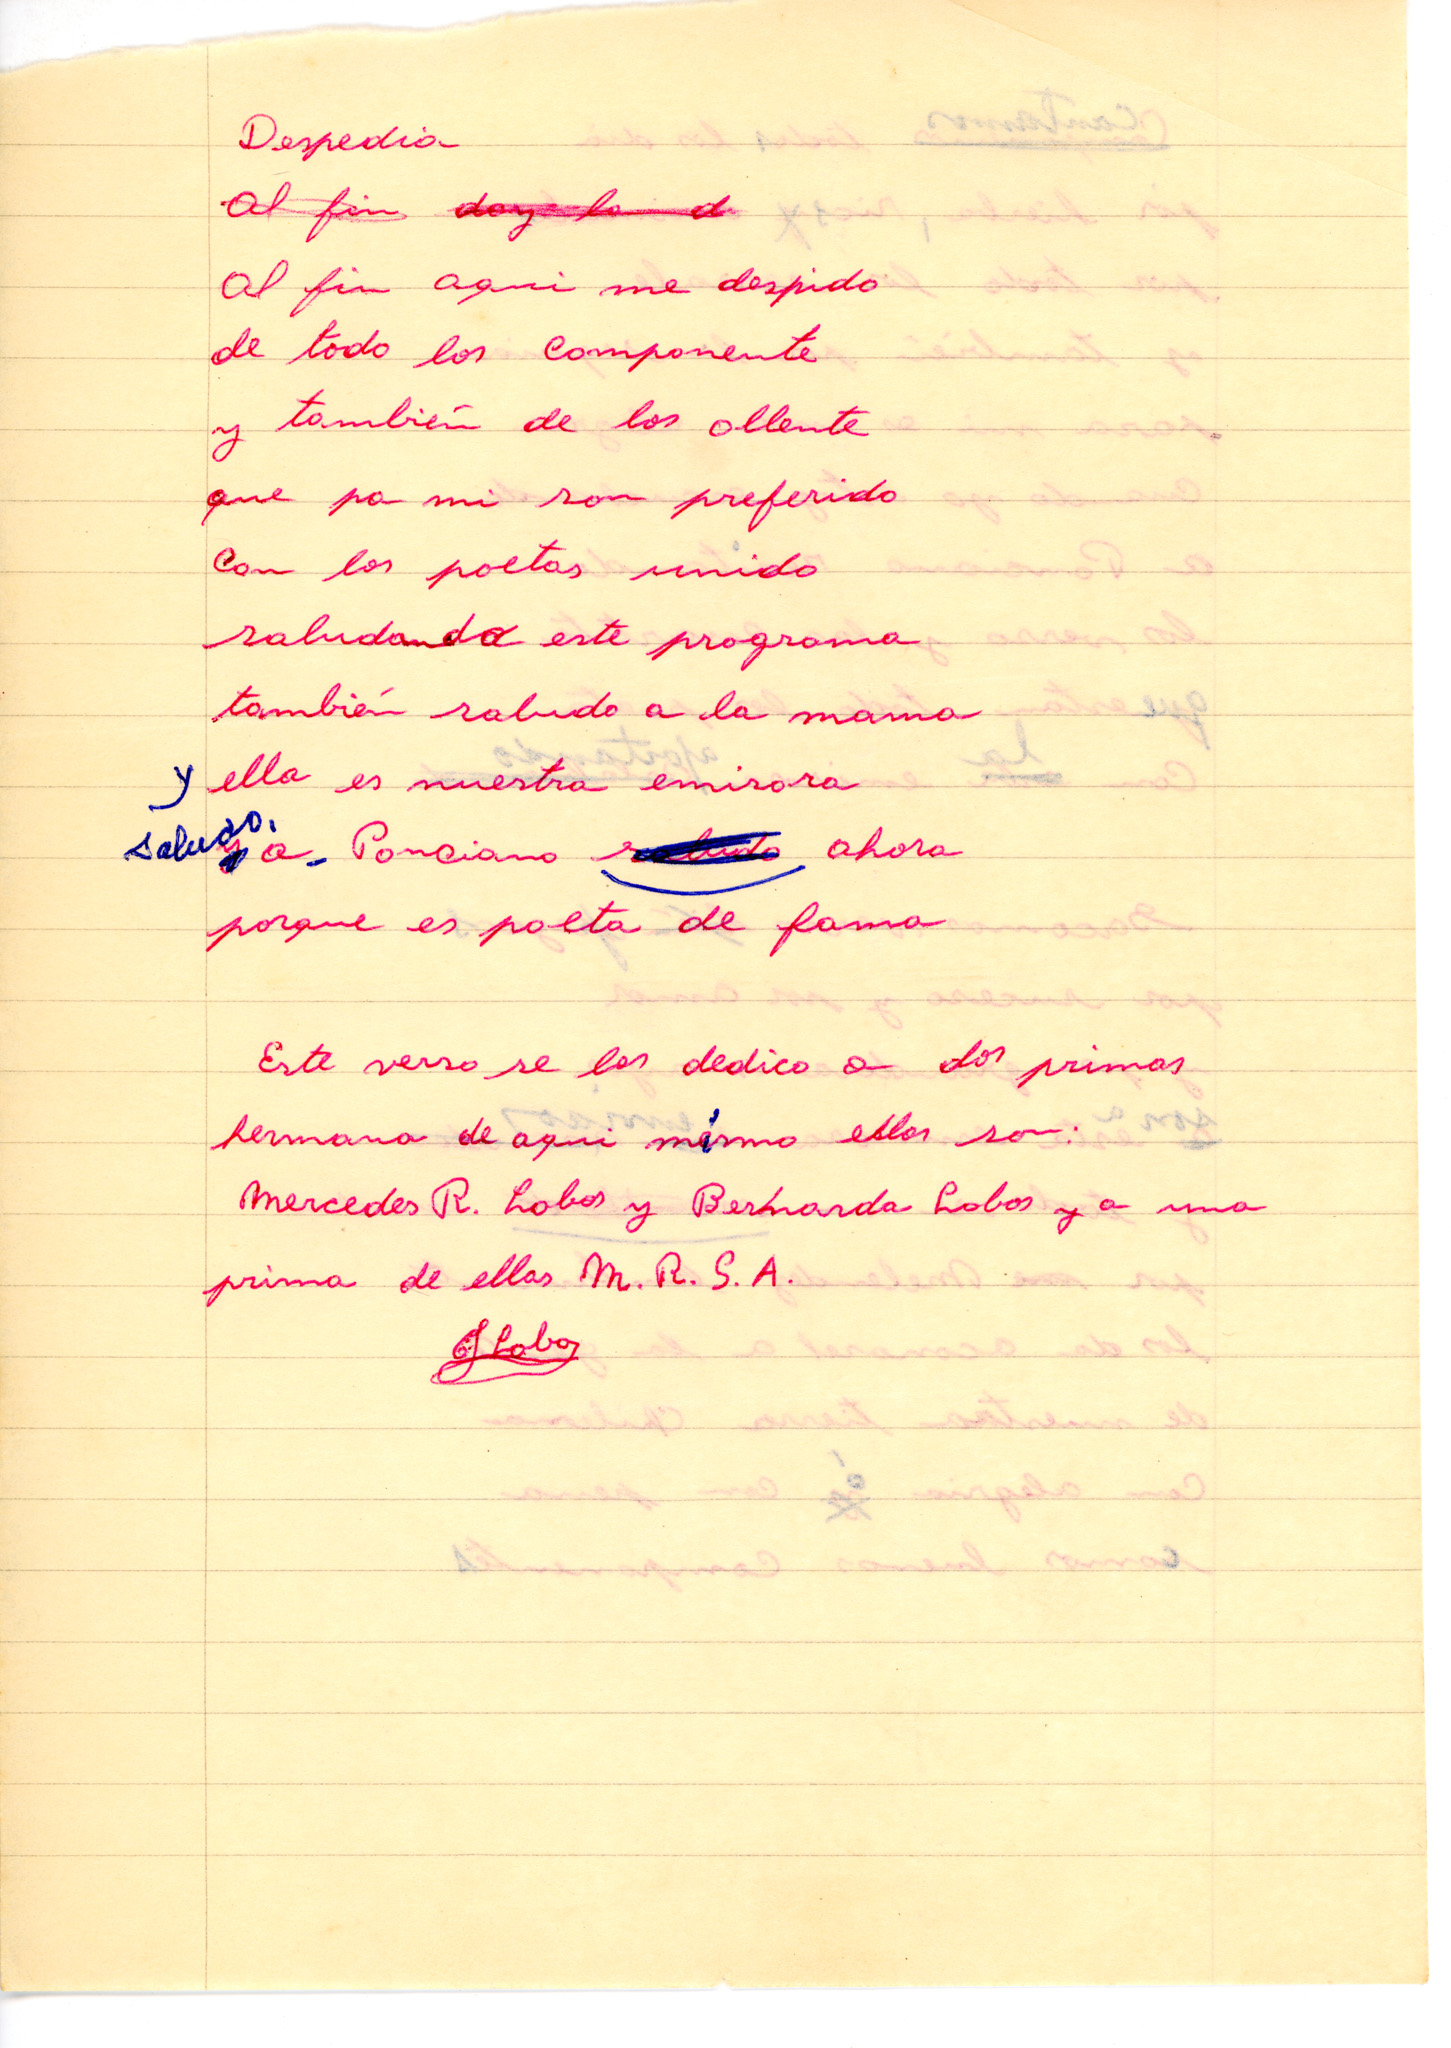 Despedia
Al fin doy la d
Al fin aqui me despido
de todo los componente
y también de los ollente
que pa mi son preferido
Con los poetas unido
saludando este programa
también saludo a la mama
y ella es nuestra emisora
saludo a Ponciano saludo ahora
porque es poeta de fama
Este verso se los dedico a dos primas
hermana de aqui mismo ellas son:
Mercedes R. Lobos y Bernarda Lobos y a una
prima de ellas M. R. S. A.
Lobos